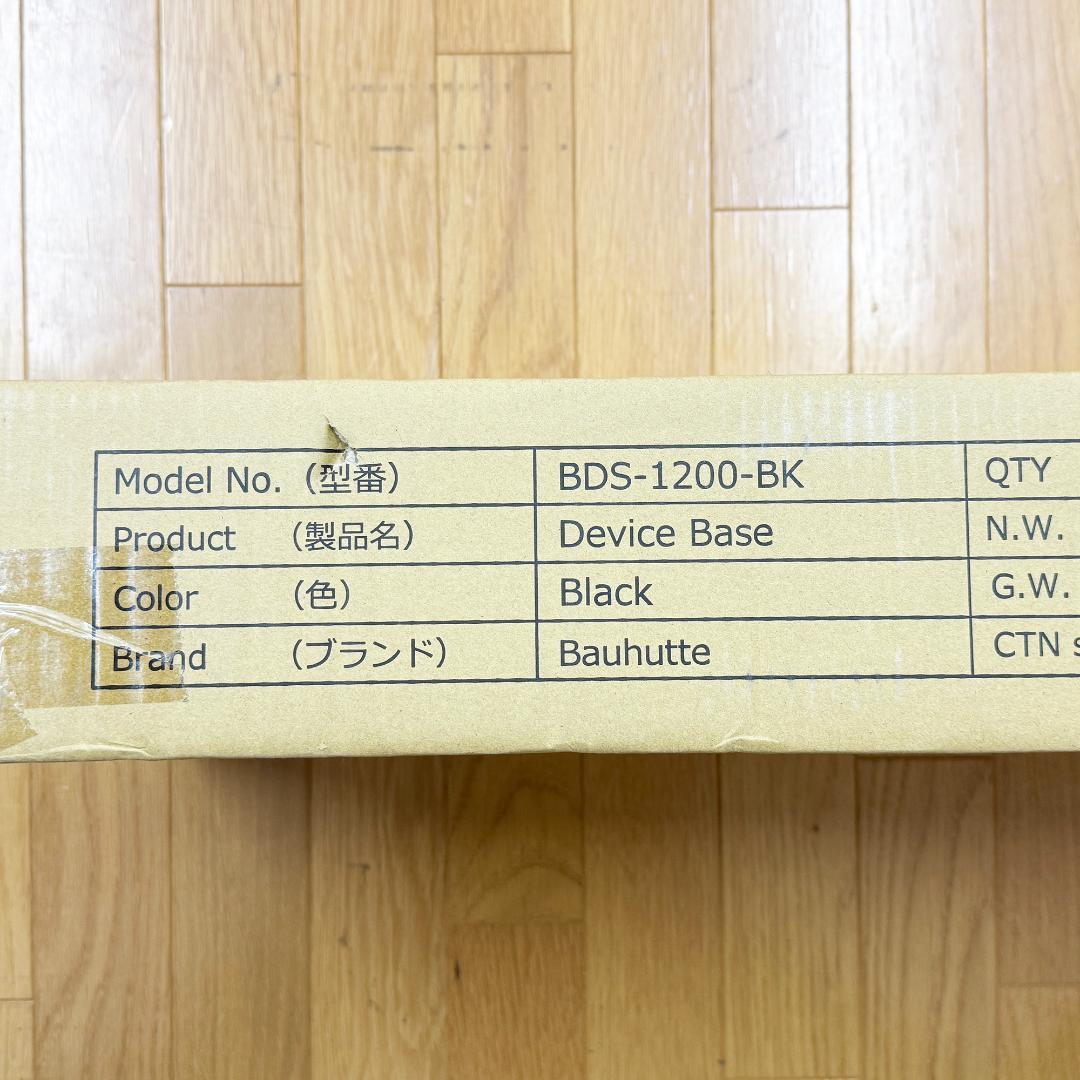 Model No. （型番） BDS-1200-BK QTY
Product （製品名） Device Base N.W.
Color （色） Black G.W.
Brand （ブランド） Bauhutte CTN s